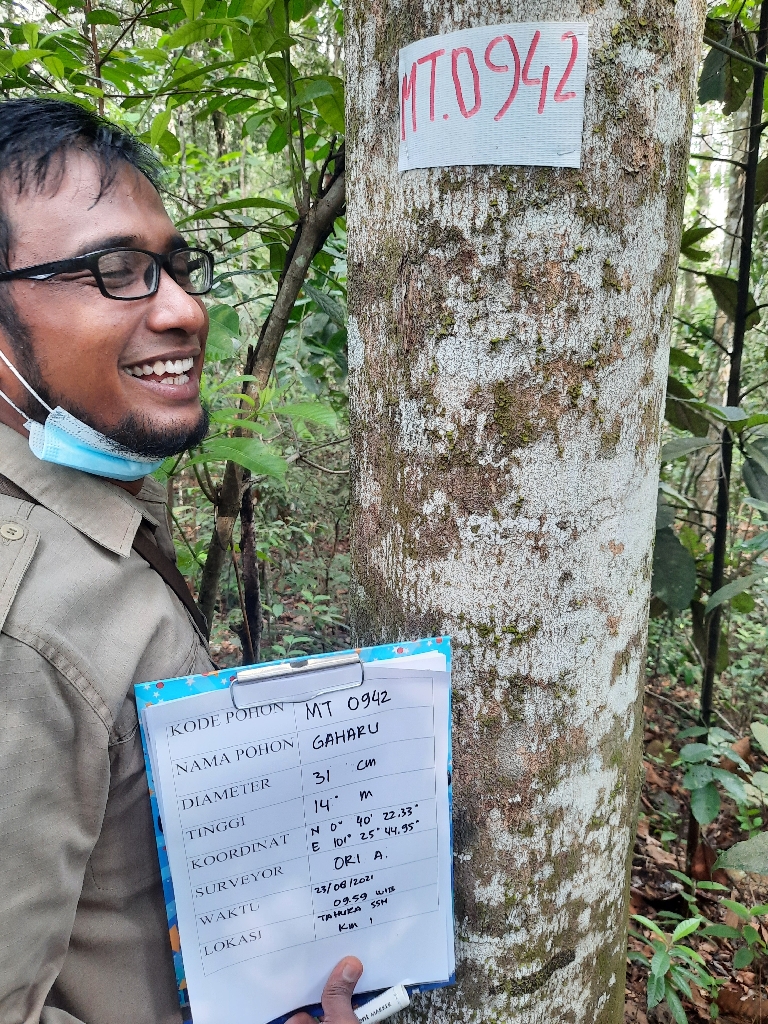 MT.0942
KODE POHON MT 0942
NAMA POHON GAHARU
DIAMETER 31 cm
TINGGI 14 m
KOORDINAT N 0° 40' 22.33"
E 101° 25' 44.95"
SURVEYOR ORI A.
WAKTU 23/08/2021
09.59 WIB
LOKASI TAHURA SSH
KM 1